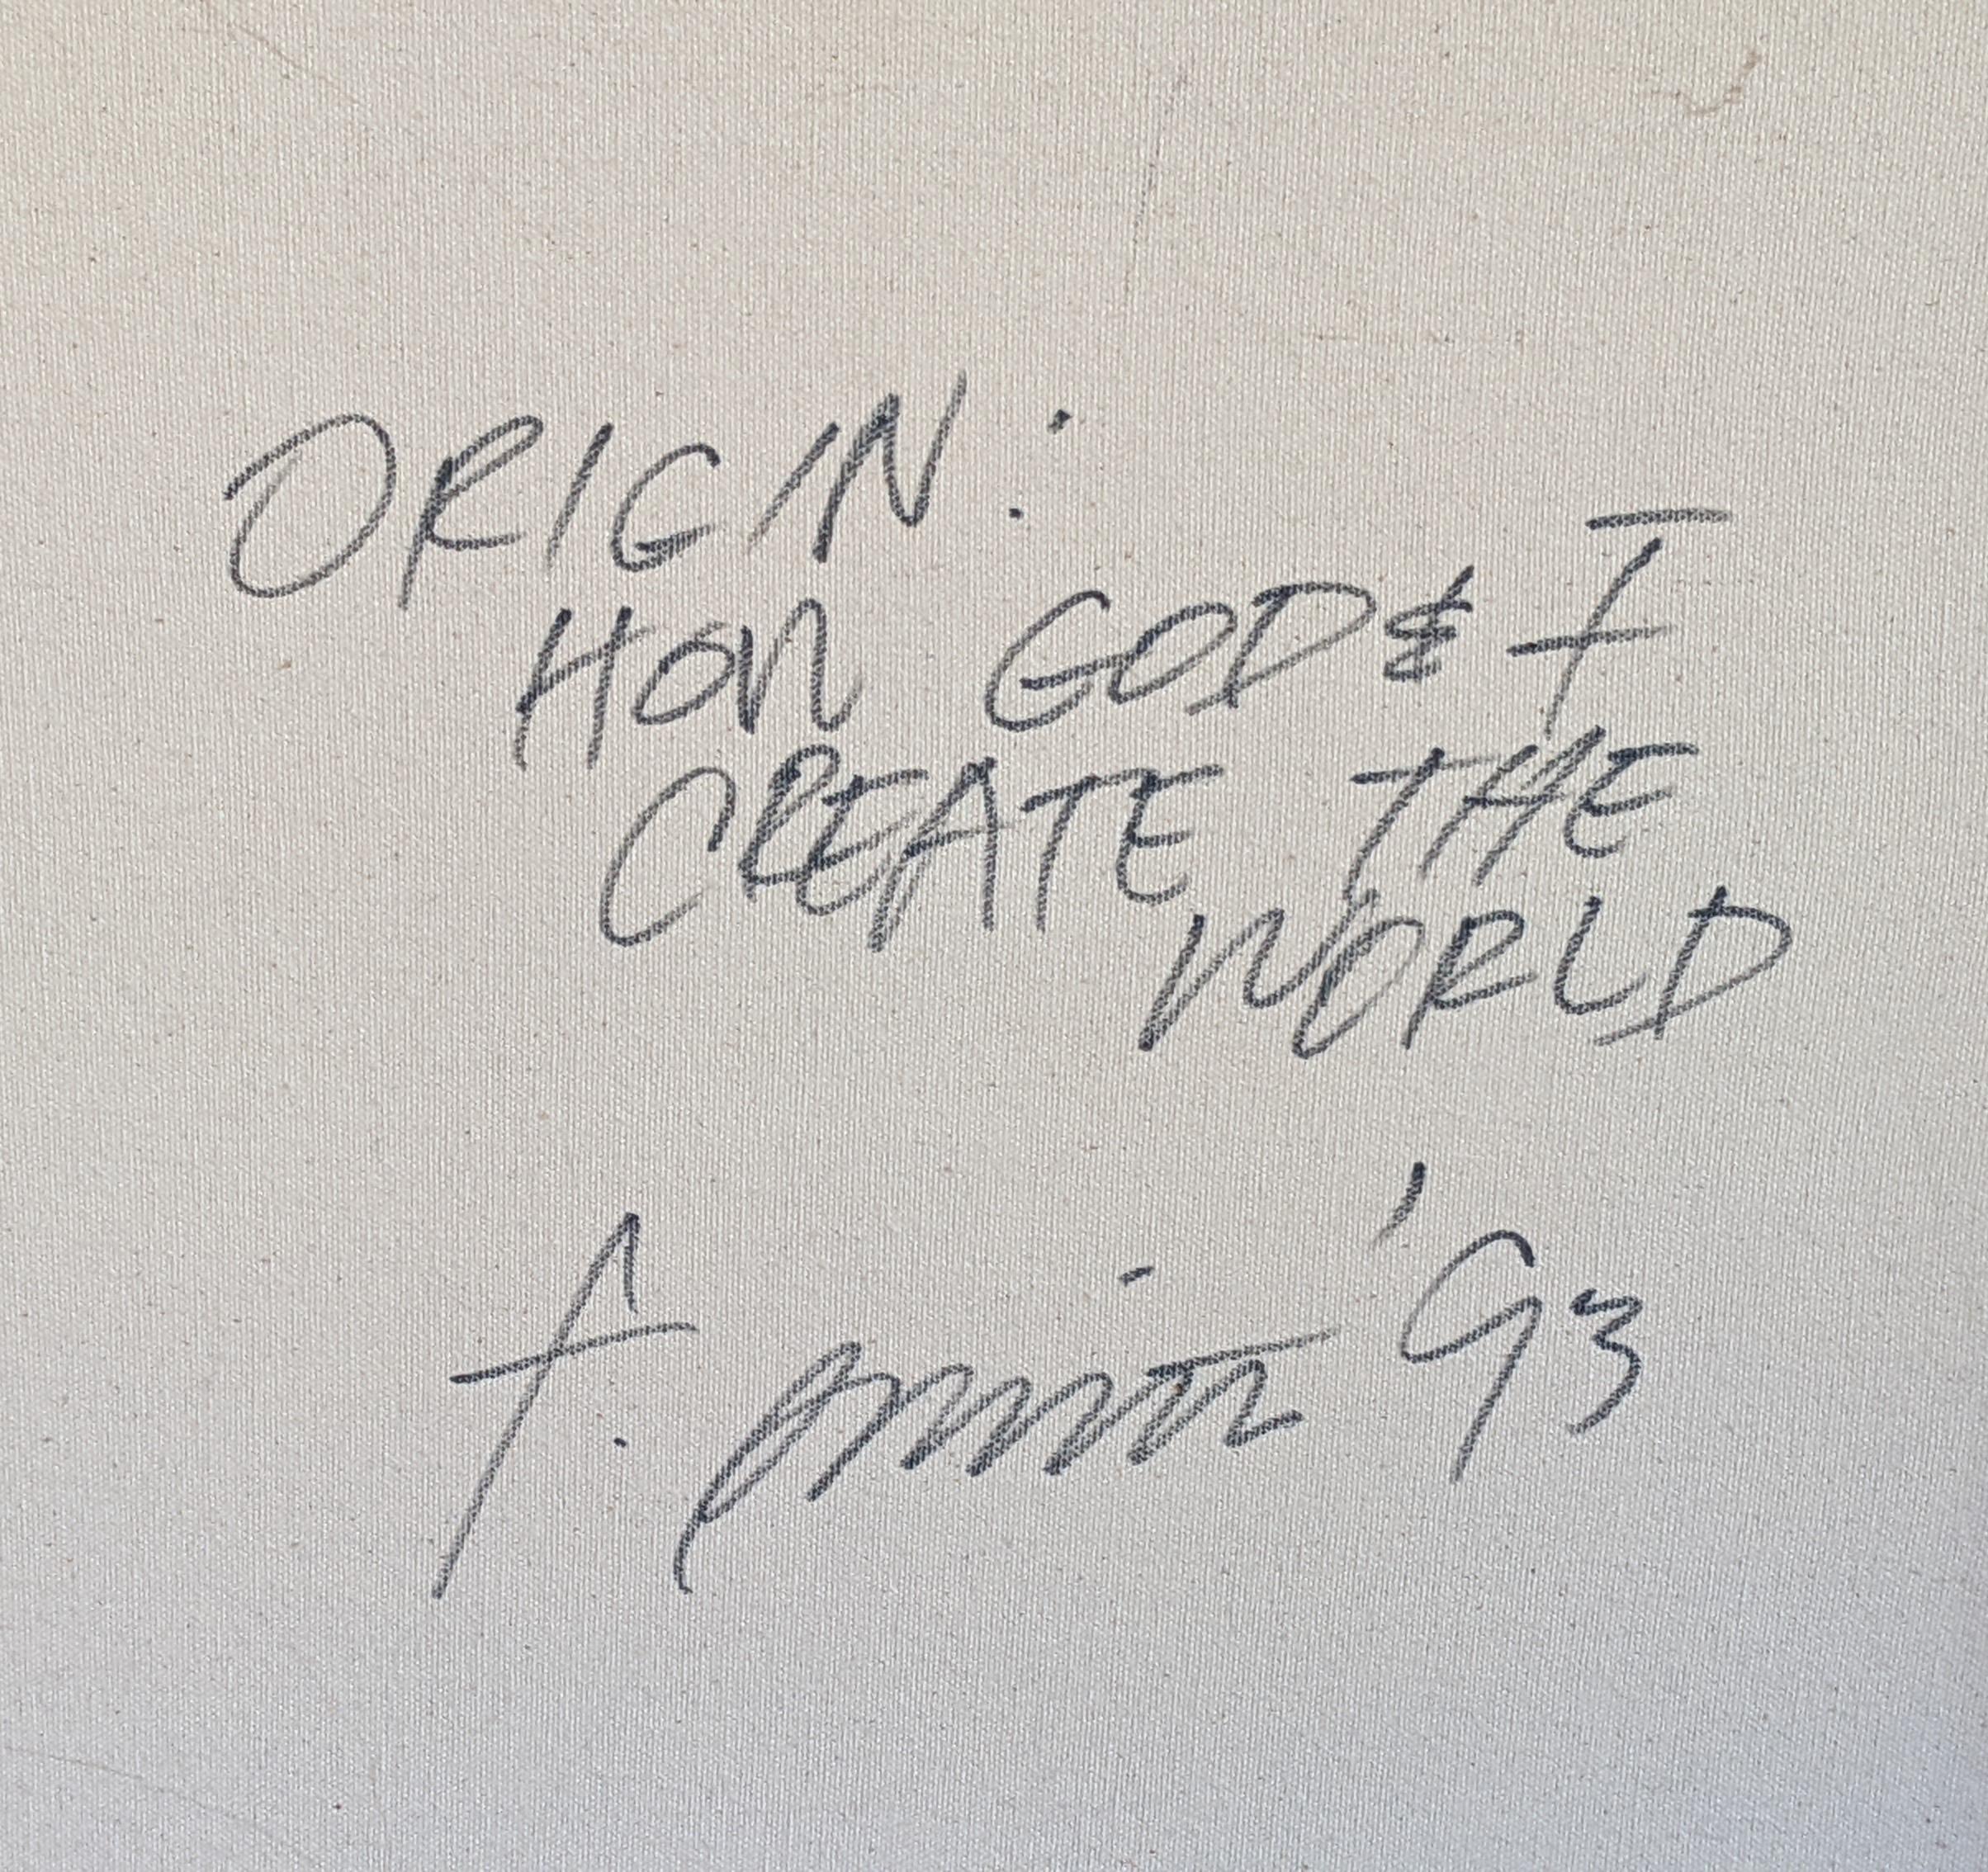 ORIGIN:
HOW GOD & I
CREATE THE
WORLD
'93